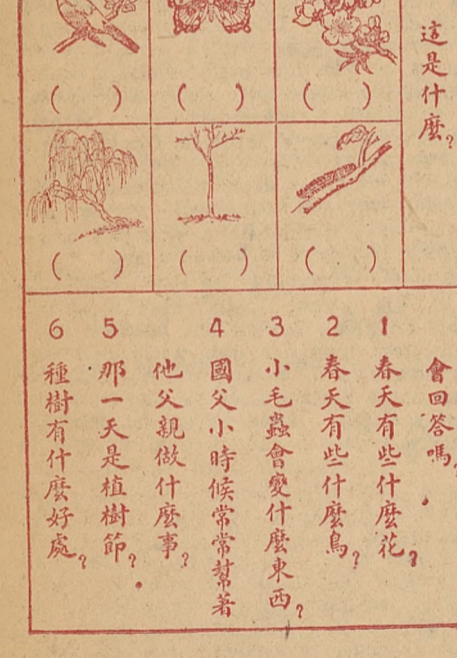 這是什麼?
( )
( )
( )
( )
( )
( )
會回答嗎?
1 春天有些什麼花?
2 春天有些什麼鳥?
3 小毛蟲會變什麼東西?
4 國父小時候常常幫著
他父親做什麼事?
5 那一天是植樹節?
6 種樹有什麼好處?